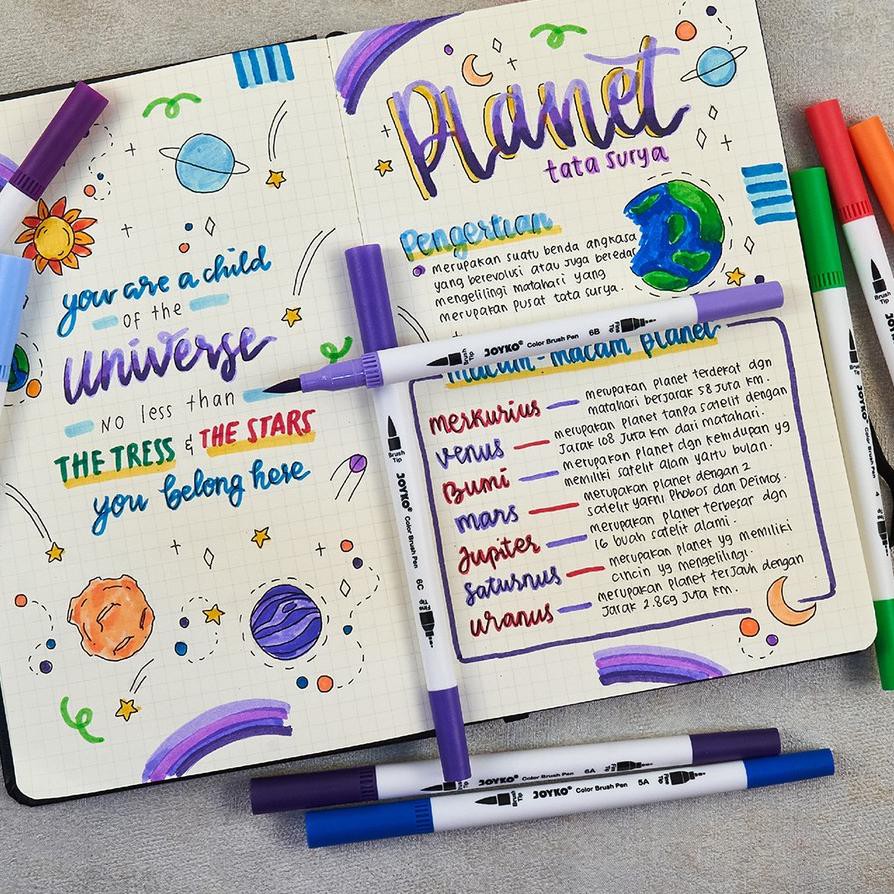 you are a child
OF the
universe
NO less than
THE TRESS & THE STARS
you belong here
Planet
tata surya
Pengertian
merupakan suatu benda angkasa
yang berevolusi atau juga beredar
mengelilingi matahari yang
merupakan pusat tata surya.
macam-macam planet
merkurius — merupakan planet terdekat dgn
matahari berjarak 58 juta km.
venus — merupakan planet tanpa satelit dengan
jarak 108 juta km dari matahari.
Bumi — merupakan planet dgn kehidupan yg
memiliki satelit alam yaitu bulan.
mars — merupakan planet dengan 2
satelit yakni Phobos dan Deimos.
Jupiter — merupakan planet terbesar dgn
16 buah satelit alami.
saturnus — merupakan planet yg memiliki
cincin yg mengelilingi.
uranus — merupakan planet terjauh dengan
Jarak 2.869 juta km.
Brush Tip JOYKO® Color Brush Pen 6B Fine Tip
Brush Tip JOYKO® Color Brush Pen 6C Fine Tip
JOYKO® Color Brush Pen 6A Fine Tip
Brush Tip JOYKO® Color Brush Pen 5A Fine Tip